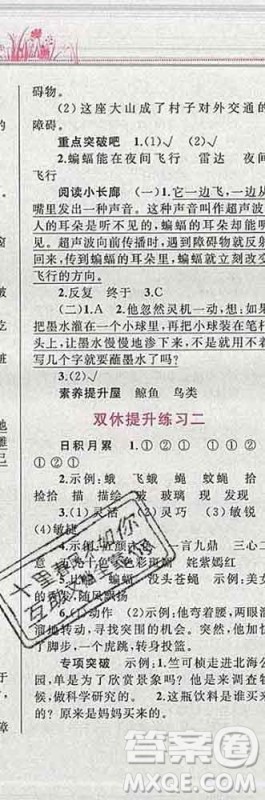 碍物。
(2)这座大山成了村子对外交通的
障碍。
重点突破吧 1.(1)√ (2)√
2.蝙蝠能在夜间飞行 雷达 夜间
飞行
阅读小长廊 (一)1.它一边飞,一边从
嘴里发出一种声音。这种声音叫作超声波,
人的耳朵是听不见的,蝙蝠的耳朵却能听
见。超声波向前传播时,遇到障碍物就反射
回来,传到蝙蝠的耳朵里,蝙蝠就立刻改变
飞行的方向。
2.反复 终于 3.C
(二)1.A 2.他忽然灵机一动,想:如果
把墨水灌在一个小球里,再把小球装在笔杆
里,让墨水慢慢地往下流,不就可以不用每
写几个字就要蘸墨水了吗?
3.(2)√
素养提升屋 鲸鱼 鸟类
双休提升练习二
日积月累 1.①② ①② ①
①②①②
2.示例:蛾 飞蛾 蝇 蚊蝇 捡
捡拾 描 描绘 玻 玻璃 现 发现
3.(1)灵活 (2)灵巧 (3)敏锐
(4)敏捷
一言九鼎 三心二
姹紫嫣红
没头苍蝇 示例:
随风飘扬
他弯着腰,两眼
着。
一个虎跳,转身投篮。
专项突破 示例:1.竺可桢走进北海公
园,是为了欣赏景象吗?他是来调查物
候,做科学研究的。 2.这瓶饮料是谁买
的?原来是妈妈买来的。
答案圈
MXQE.COM